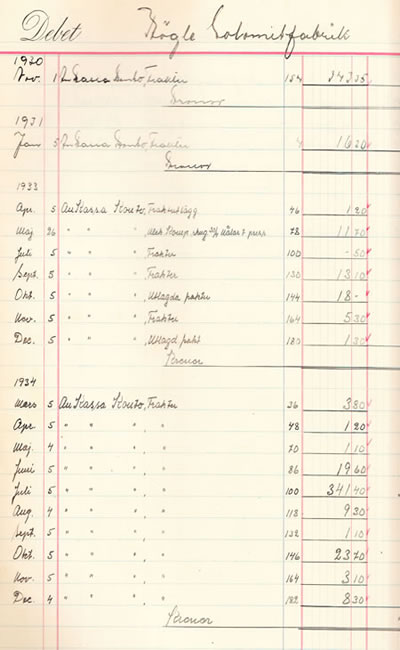 Debet Högle Dolomitfabrik
1930
Nov. 1 Kassa Konto, Frakter 154
Kronor
1931
Jan 5 Kassa Konto, Frakter 4 16 20
Kronor
1933
Apr. 5 An Kassa Konto, Fraktutlägg 46 1 20
Maj 26 " " " 78 11 70
Juli 5 " " ", Frakter 100 - 50
Sept. 5 " " ", Frakter 130 13 10
Okt. 5 " " ", Utlagda frakter 144 18 -
Nov. 5 " " ", Frakter 164 5 30
Dec. 5 " " ", Utlagd frakt 180 1 30
Kronor
1934
Mars 5 An Kassa Konto, Frakter 36 3 80
Apr. 5 " " ", " 48 1 20
Maj. 4 " " ", " 70 1 10
Juni 5 " " ", " 86 19 60
Juli 5 " " ", " 100 341 40
Aug. 4 " " ", " 118 9 30
Sept. 5 " " ", " 132 1 10
Okt. 5 " " ", " 146 23 70
Nov. 5 " " ", " 164 3 10
Dec. 4 " " ", " 182 8 30
Kronor